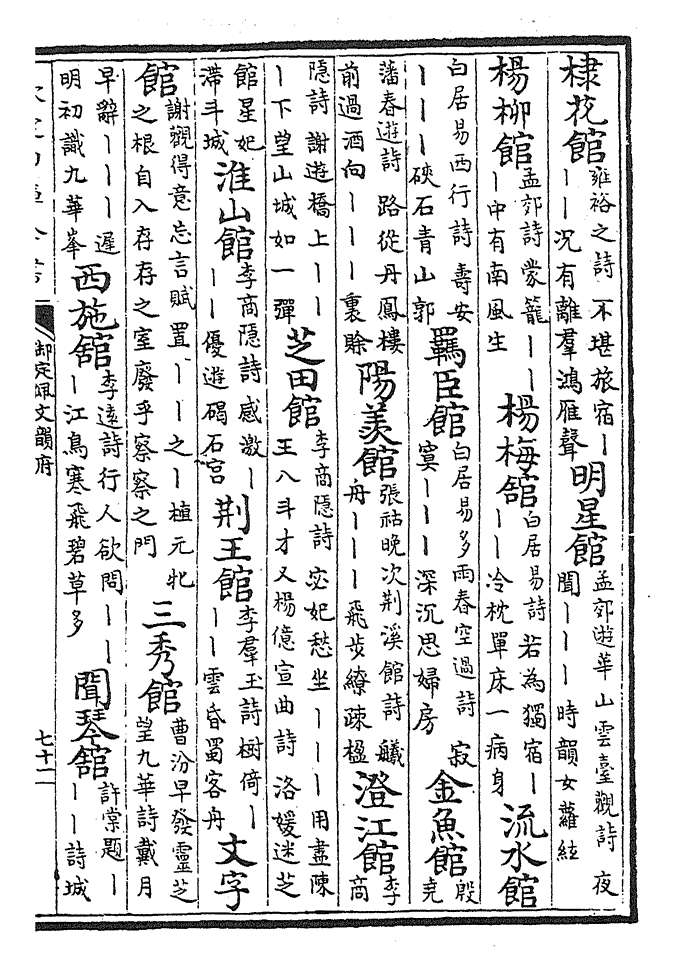 棣花館雍裕之詩不堪旅宿丨丨丨况有離羣鴻雁聲明星館孟郊遊華山雲臺觀詩夜聞丨丨丨時韻女蘿絃
楊柳館孟郊詩蒙籠丨丨丨中有南風生楊梅館白居易詩若為獨宿丨丨丨冷枕單床一病身流水館
白居易西行詩壽安丨丨丨硤石青山郭羈臣館白居易多雨春空過詩寂寞丨丨丨深沉思婦房金魚館殷堯
藩春遊詩路從丹鳳樓前過酒向丨丨丨裏賒陽羨館張祜晚次荆溪館詩艤舟丨丨丨飛步繚疎楹澄江館李商
隱詩謝遊橋上丨丨丨下望山城如一彈芝田館李商隱詩宓妃愁坐丨丨丨用盡陳王八斗才又楊億宣曲詩洛媛迷芝
館星妃滯斗城淮山館李商隱詩感激丨丨丨優遊碣石宫荆王館李羣玉詩樹倚丨丨丨雲昏蜀客舟文字
館謝觀得意忘言賦置丨丨之丨植元牝之根自入存存之室廢乎察察之門三秀館曹汾早發靈芝望九華詩戴月
早辭丨丨丨遲明初識九華峯西施館李遠詩行人欲問丨丨丨江鳥寒飛碧草多聞琴館許棠題丨丨丨詩城
御定佩文韻府
七十一